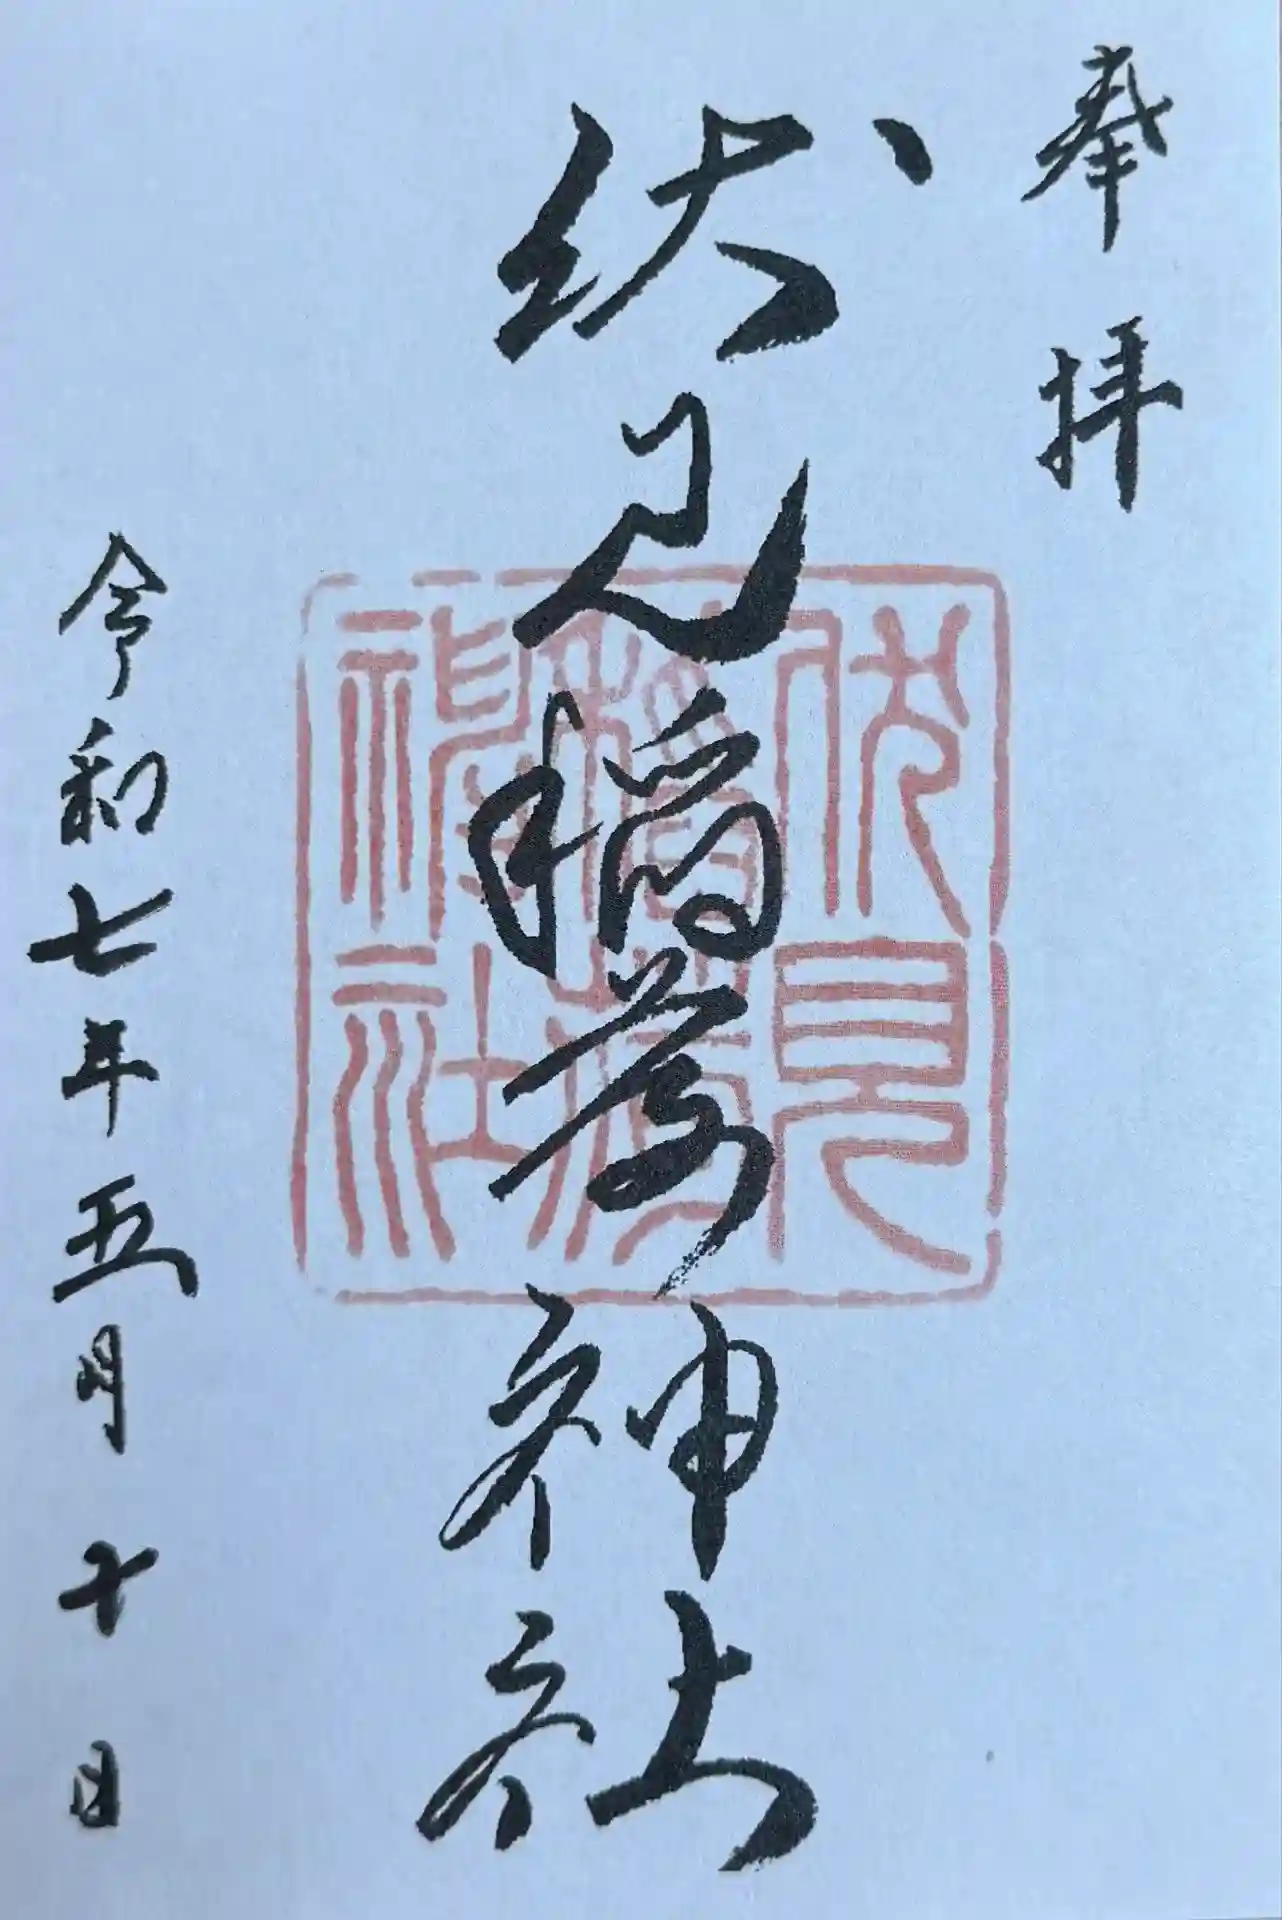 奉拝
伏見稲荷神社
伏見
稲荷
神社
令和七年五月十日